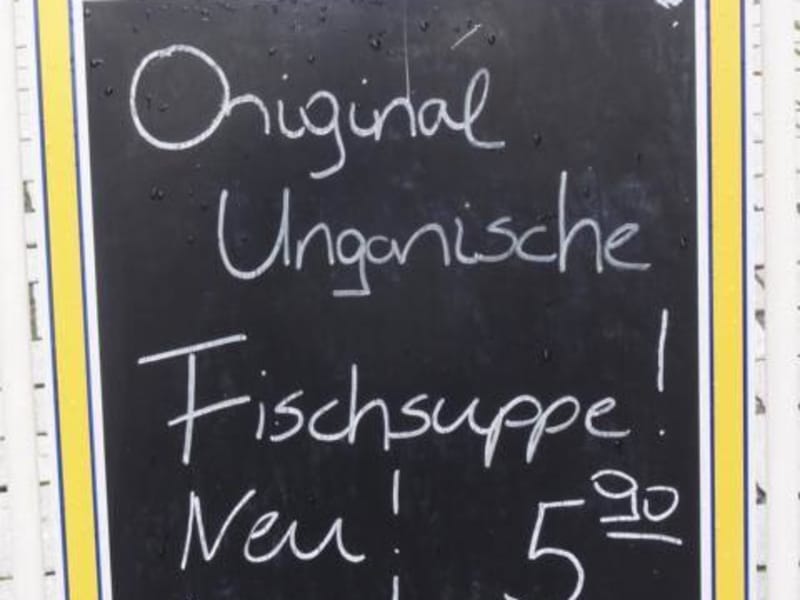 Original
Ungarische
Fischsuppe!
Neu! 5 90